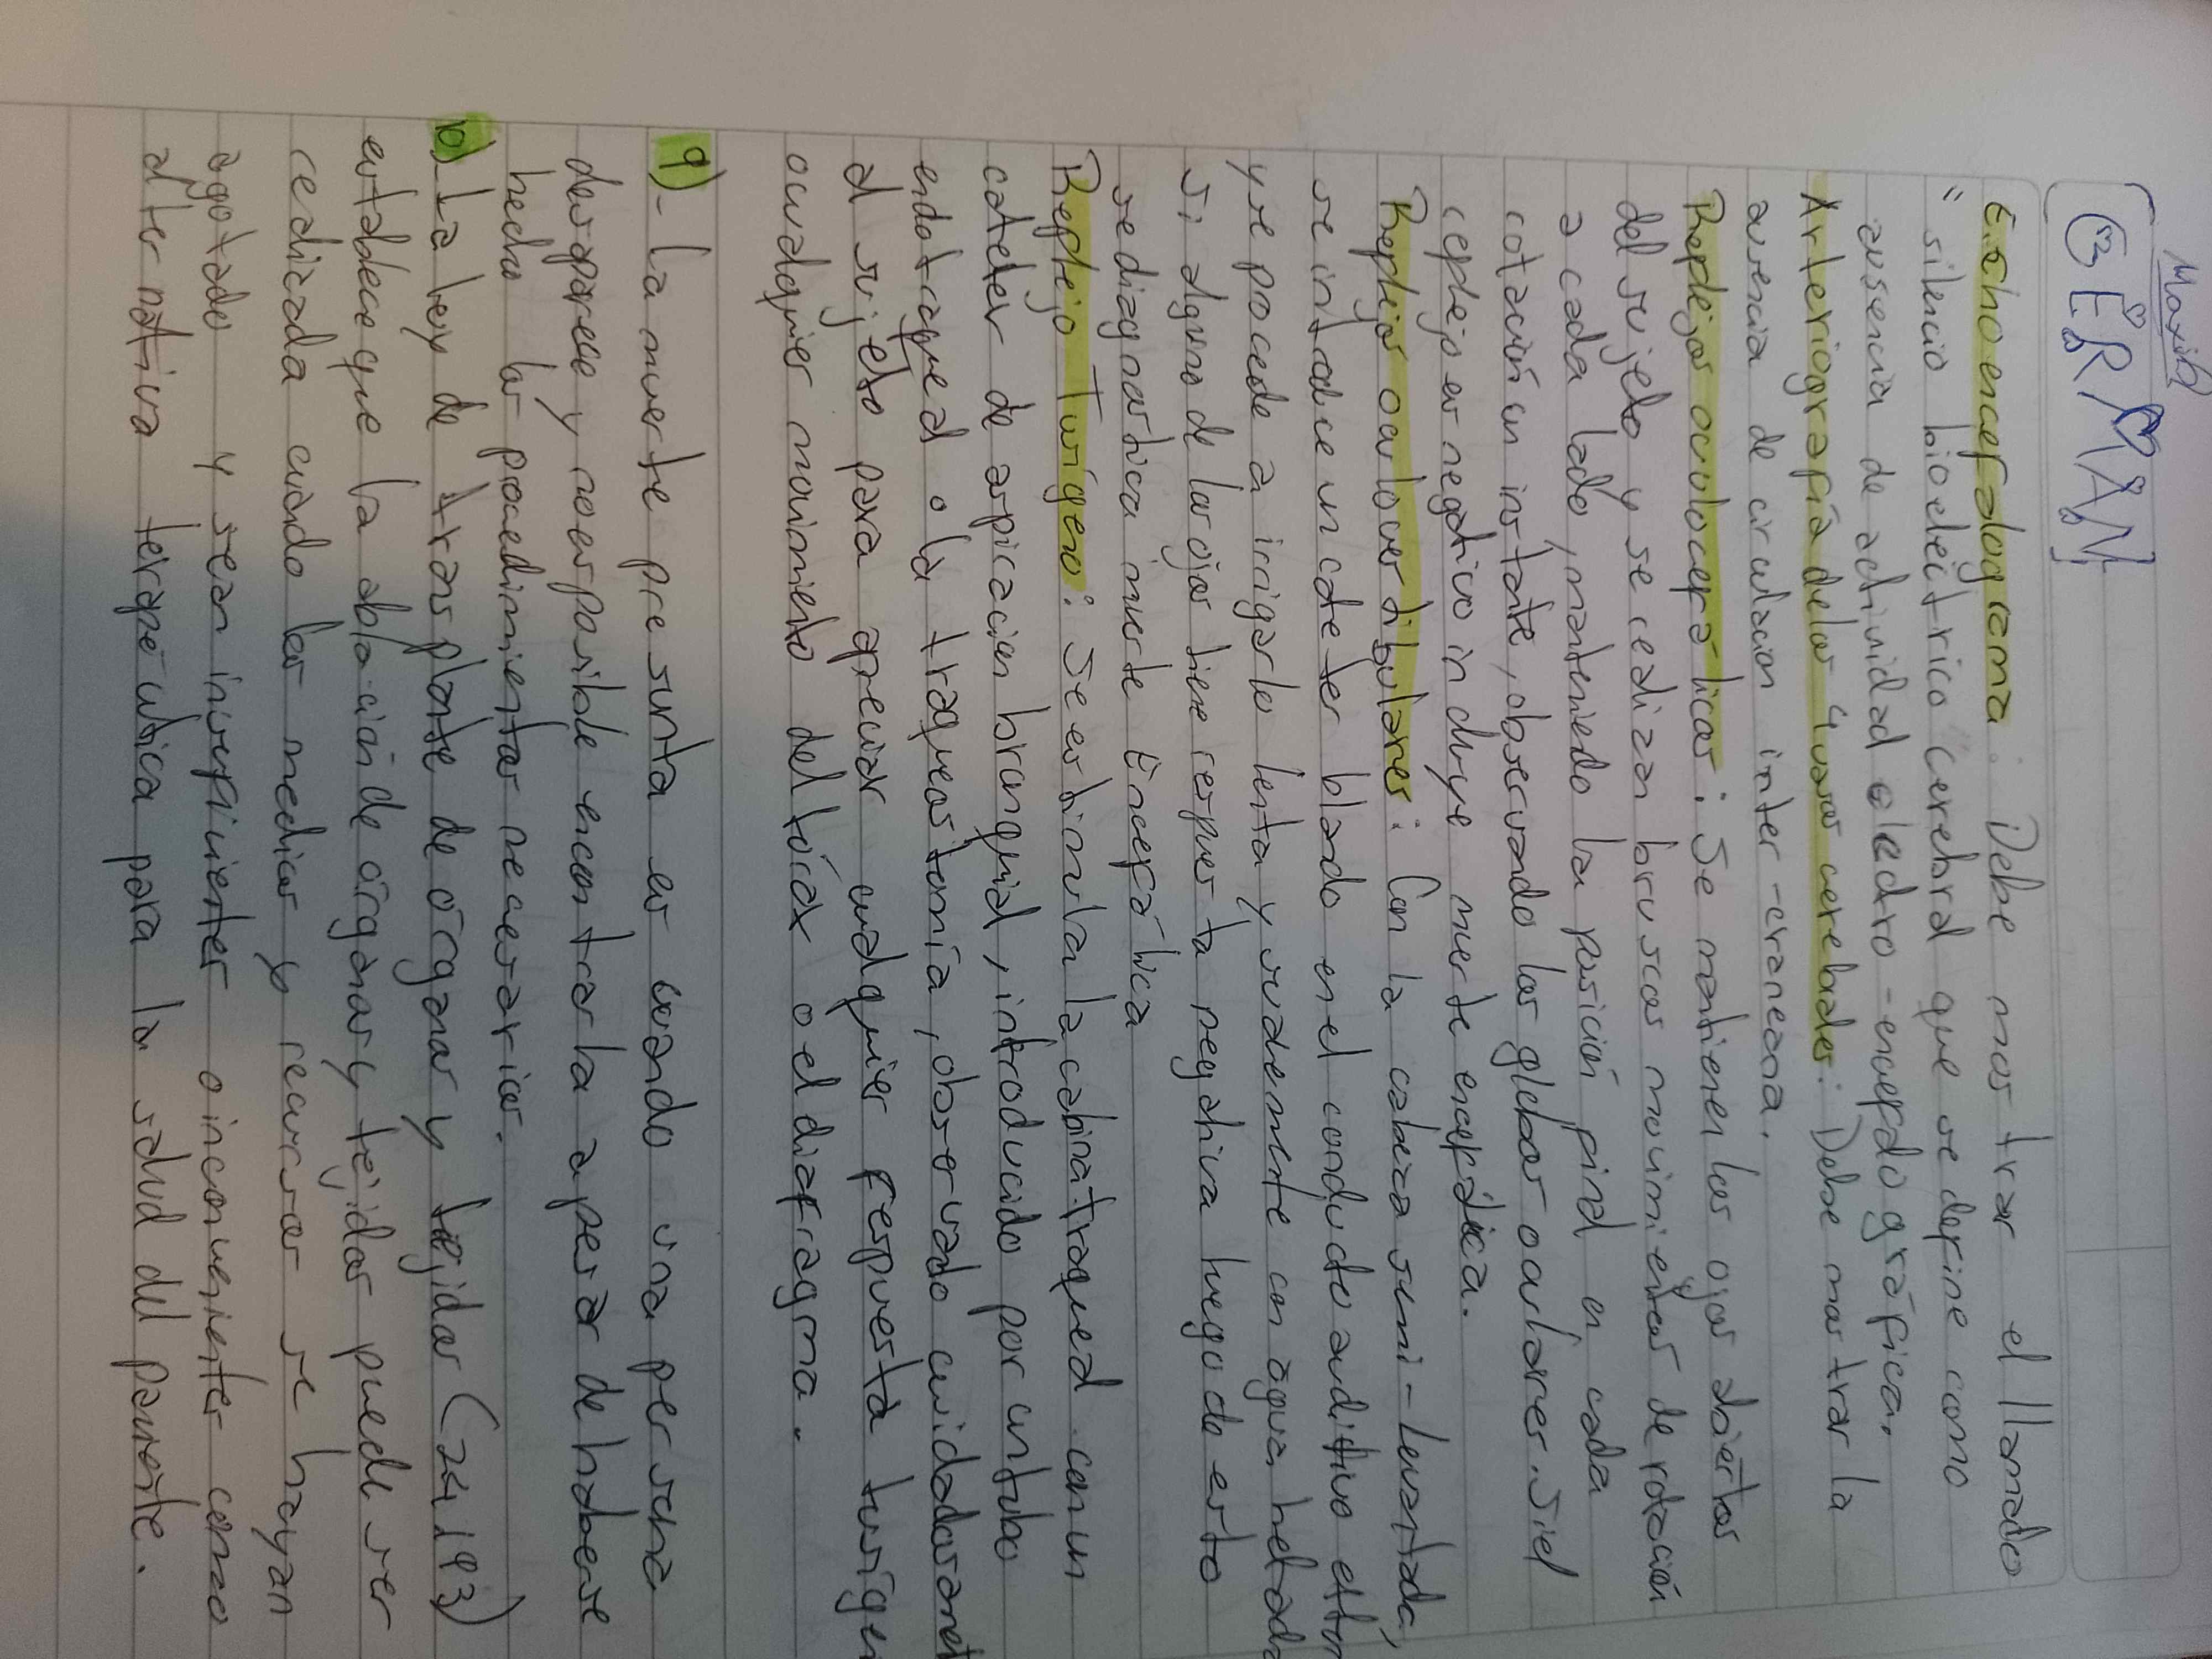 Maxib
GERMAN
E.choencefalograma: Debe mostrar el llamado
"silencio bioeléctrico cerebral que se define como
ausencia de actividad electro-encefalográfica.
Arteriografía de los 4 vasos cerebrales: Debe mostrar la
ausencia de circulacion inter-craneana.
Reflejos oculocefálicos: Se mantienen los ojos abiertos
del sujeto y se realizan bruscos movimientos de rotación
a cada lado, manteniedo la posición final en cada
rotación un instante, observando los globos oculares. Si el
reflejo es negativo indluye muerte encefálica.
Reflejos oculovestibulares: Con la cabeza semi-levantada,
se introduce un cateter blando en el conducto auditivo
y se procede a irrigarlo lenta y suavemente con agua
si alguno de los ojos tiene respuesta negativa luego de esto
se diagnostica muerte Encefálica
Reflejo Tusígeno: Se estimula la cabina traqueal con un
cateter de aspiracion bronquial, introducido por un tubo
endotraqueal o la traqueostomía, observado
al sujeto para apreciar cualquier respuesta
cualquier movimiento del tórax o el diafragma.
9)- La muerte presunta es cuando una persona
desaparece y no es posible encontrarla a pesar de haberse
hecho los procedimientos necesarios.
10) La ley de transplante de órganos y tejidos (24193)
establece que la ablación de órganos y tejidos puede ser
realizada cuando los medios y recursos se hayan
agotado y sean insuficientes o inconvenientes como
alternativa terapéutica para la salud del paciente.